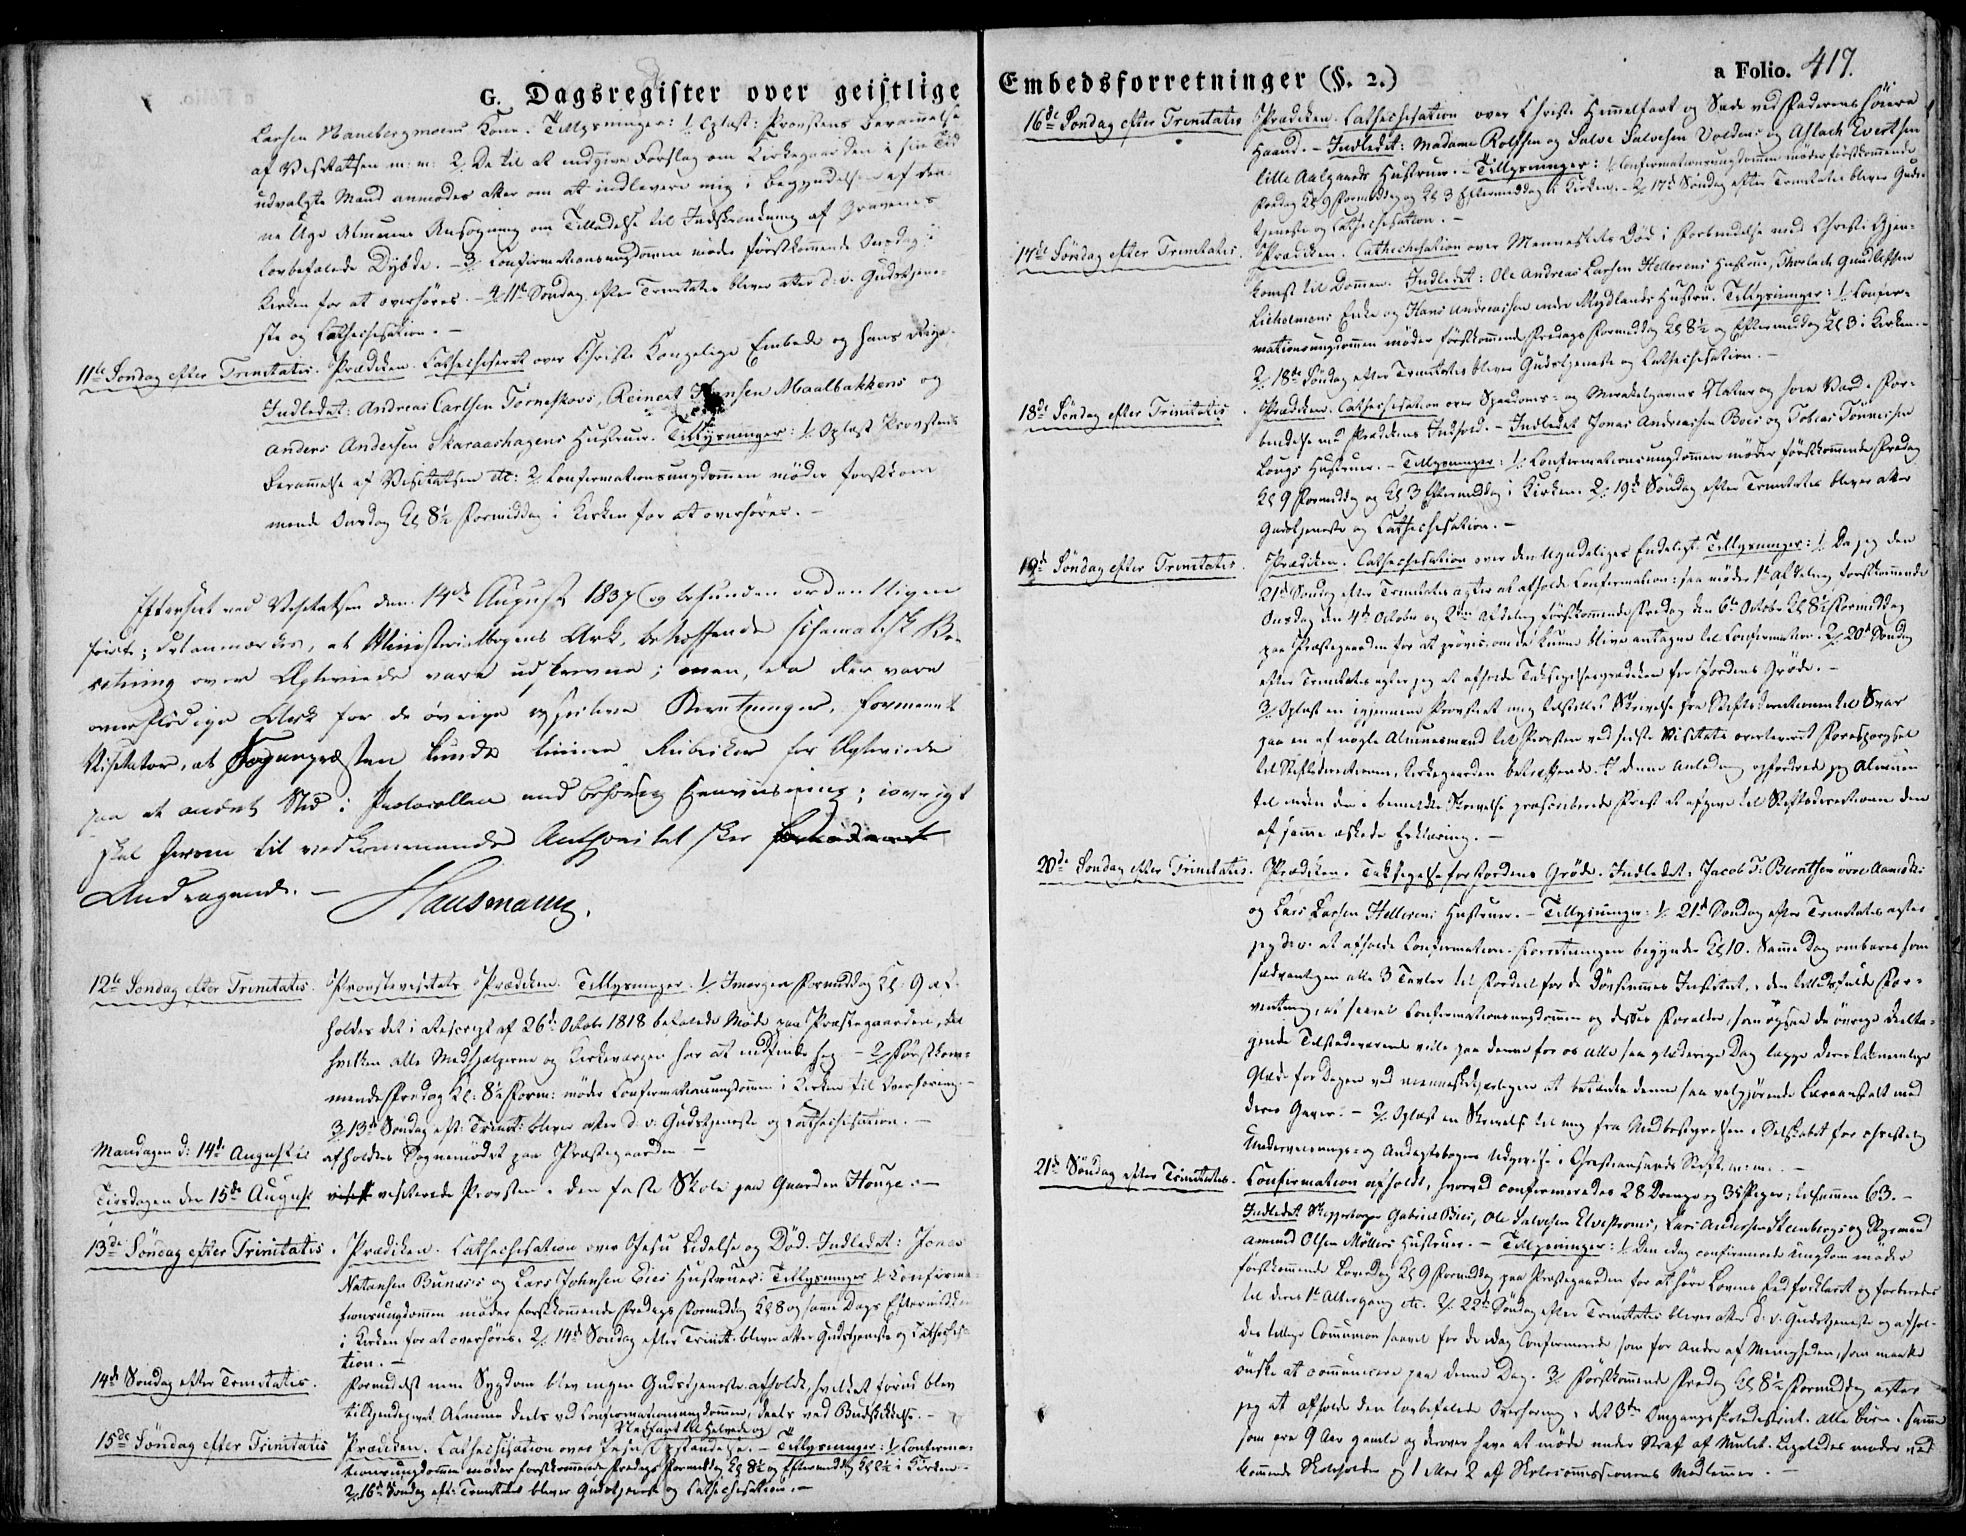 G. Dagsregister over geistlige
Larsen Hanebergmoens Kone. Tillysninger: 1/ Oplæst: Provstens Berammelse
af Visitatsen m: m: 2/ De til at indgive Forslag om Kirkegaarden i sin Tid
udvalgte Mænd anmodes atter om at indlevere mig i Begyndelsen af den-
ne Uge Almuens Ansøgning om Tilladelse til Indskrænkning af Gravenes
lovbefalede Dybde. - 3/ Confirmationsungdommen møder förstkommende Onsdag i
Kirken for at overhøres. - 4/ 11te Søndag efter Trinitatis bliver atter d: v: Gudstjene-
ste og Cathechisation. -
11te Söndag efter Trinitatis. Prædiken. Cathechiseret over Christi Kongelige Embede og hans Rige.
Indledet: Andreas Carlsen Torneskors, Reinert Hansen Maalbakkens og
Anders Andersen Skaraashagens Hustruer. Tillysninger: 1/ Oplæst Provstens
Berammelse af Visitatsen etc: 2/ Confirmationsungdommen möder forstkom
mende Onsdag Kl 8½ Formiddag i Kirken for at overhöres. -
Efterseet ved Visitatsen den 14de August 1837 og befunden ordentligen
ført; dog anmærkes, at Ministerialbogens Ark, betræffende schematisk Be-
retning over Døbte vare udskrevne; men, da der vare
overflödige Ark for de övrige specielle Beretninger, formeente
Visitator, at Sognepræsten kunde linere Rubrikker for
paa et andet Sted i Protocollen med behörig Henviisning; iövrigt
skal herom til vedkommende Authoritet skee
Andragende. - Hausmann.
12te Søndag efter Trinitatis. Provstevisitats Prædiken. Tillysninger. 1/ Imorgen Formiddag Kl: 9 af-
holdes det i Rescript af 26de Octobr 1818 befalede Møde paa Præstegaarden, ved
hvilken alle Medhjælperne og Kirkeværgen har at indfinde sig. - 2/ Førstkom-
mende Fredag Kl: 8½ Form: møder Confirmationsungdommen i Kirken til Overhøring. -
3/ 13de Søndag eft: Trinit: bliver atter d: v: Gudstjeneste og Cathechisation. -
Mandagen d: 14de Augusti afholdtes Sognemødet paa Præstegaarden -
Tirsdagen den 15de August visiterede Provsten i den faste Skole paa Gaarden Houge. -
13de Söndag efter Trinitatis. Prædiken. Cathechisation over Jesu Lidelse og Död. Indledet: Jonas
Nattansen Bunæs's og Lars Johnsen Eies Hustruer: Tillysninger 1/ Confirma-
tionsungdommen møder førstkommende Fredags Formiddag Kl 8 og samme Dags Eftermiddag
i Kirken for at overhöres. 2/ 14de Söndag efter Trinit: bliver atter Gudstjeneste og Cathechisa-
tion. -
14de Søndag efter Trinitatis. Formedelst min Sygdom blev ingen Gudstjeneste afholdt, hvilket forud blev
tilkjendegivet Almuen deels ved Confirmationsungdommen, deels ved Budskikkelse. -
Nedfart til Helvede og
15de Søndag efter Trinitatis Prædiken. Cathechisation over Jesu Opstandelse. - Tillysninger: 1/ Confirma-
tionsungdommen møder forstkommende Fredags Formiddag Kl 8½ og Eftermiddag Kl 2½ i Kirken. -
2/ 16de Søndag eft: Trinitatis bliver Gudstjeneste og Cathechisation. -
Embedsforretninger (§. 2.) a Folio. 417.
16de Søndag efter Trinitatis Prædiken. Cathechisation over Christi Himmelfart og Sæde ved Faderens høire
Haand. - Indledet: Madame Rolfsen og Salve Salvesen Voldens og Aslach Evertsen
lille Aalgaards Hustruer. - Tillysninger: 1/ Confirmationsungdommen möder förstkommende
Fredag Kl 9 Formiddag og Kl 3 Eftermiddag i Kirken. - 2/ 17de Søndag efter Trinitatis bliver Guds-
tjeneste og Cathechisation. -
17de Søndag efter Trinitatis. Prædiken. Cathechisation over Menneskets Død i Forbindelse med Christi Gjen-
komst til Dommen. Indledet: Ole Andreas Larsen Hellerens Hustrue, Thorlach Gundlefsen
Lieholmens Enke og Hans Andreassen nedr Mydlands Hustru. Tillysninger: 1/ Confir-
mationsungdommen møder förstkommende Fredags Formiddag Kl 8½ og Eftermiddag Kl 3 i Kirken. -
2/ 18de Söndag efter Trinitatis bliver Gudstjeneste og Cathechisation. -
18de Søndag efter Trinitatis Prædiken. Cathechisation over Spaadoms- og Mirakelgavens Natur og hver Værd i For-
bindelse med Prædikens Indhold. - Indledet Jonas Andreassen Boes og Tobias Tönnesen
Lougs Hustruer. - Tillysninger: 1/ Confirmationsungdommen møder förstkommende Fredag
Kl 9 Formiddag og Kl 3 Eftermiddag i Kirken. 2/ 19de Søndag efter Trinitatis bliver atter
Gudstjeneste og Cathechisation. -
19de Søndag efter Trinitatis. Prædiken. Cathechisation over den Ugudeliges Endeligt. Tillysninger: 1/ Da jeg den
21de Søndag efter Trinitatis agter at afholde Confirmation: saa møder 1ste Afdeling förstkommende
Onsdag den 4de Octobr og 2den Afdeling förstkommende Fredag den 6te Octobr Kl 8½ Formiddag
paa Præstegaarden for at prøves, om de kunne blive antagne til Confirmation. 2/ 20de Søndag
efter Trinitatis agter jeg at afholde Taksigelsesprædiken for Jordens Grøde. -
3/ Oplæst en igjennem Provstiet mig tilstillet Skrivelse fra Stiftsdirectionen til Svar
paa en af nogle Almuesmænd til Provsten ved sidste Visitats overleveret Forespørgsel
til Stiftsdirectionen, Kirkegaarden betræffende. I denne Anledning opfordrede jeg Almuen
til inden den i bemeldte Skrivelse præscriberede Frist at afgive til Stiftsdirectionen den
af samme æskede Erklæring. -
20de Søndag efter Trinitatis. Prædiken. Taksigelse for Jordens Gröde. Indledet: Jacob T. Berntsen övre Aamodts
og Lars Larsen Hellerens Hustruer. - Tillysninger: 1/ 21de Søndag efter Trinitatis agter
jeg d: v: at afholde Confirmation. Forretningen begynder Kl 10. Samme Dag ombæres som
sædvanligen alle 3 Tavler til Fordeel for de Døvstummes Institut, i den tillidsfulde For-
ventning, at saavel Confirmationsungdommen og dessers Forældre, som ogsaa de övrige deelta-
gende Tilstedeværende ville paa denne for os alle saa glædelige Dag lægge deres taknemmelige
Glæde for Dagen ved menneskekjærligen at betænke denne saa velgjörende Læreanstalt med
deres Gaver. - 2/ Oplæst en Skrivelse til mig fra Medbestyrelsen i Selskabet for christelig
Underviisnings- og Andagtsbøgers Udgivelse i Christiansands Stift. m: m: -
21de Søndag efter Trinitatis. Confirmation afholdt, hvorved confirmeredes 28 Drenge og 35 Piger; tilsammen 63. -
Indledet Skipperborger Gabriel Bies, Ole Salvesen Elvestroms, Lars Andersen Steenbergs og Styrmand
Amund Olsen Møllers Hustruer. - Tillysninger: 1/ Den idag confirmerede Ungdom möder
förstkommende Løverdag Kl 9 Formiddag paa Præstegaarden for at høre Lovens Eed forklaret og forberedes
til deres 1ste Altergang etc. 2/ 22de Søndag efter Trinitatis bliver atter d: v: Gudstjeneste og afhol-
des tillige Communion saavel for de idag Confirmerede som for Andre af Menigheden, som maatte
önske at communicere paa denne Dag. 3/ Förstkommende Fredag Kl 8½ Formiddag agter
jeg at afholde den lovbefalede Overhøring i det 3die Omgangsskoledistrict. Alle Börn i samme
som ere 9 Aar gamle og derover have at møde under Straf af Mulct. Ligeledes møder ved-
kommende Skoleholder og 1 eller 2 af Skolecommissionens Medlemmer. -